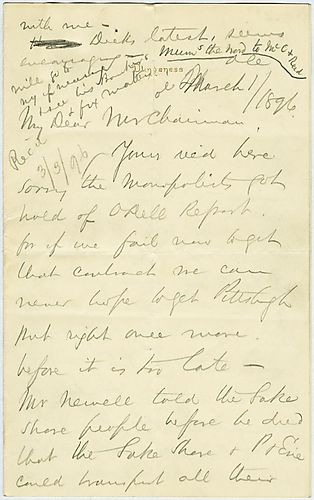 with me -
Dick's latest, seems
encouraging - Mum's the word to McC & Reid
will go to
my funeral
& see his
& fix matters
Dungeness
March 1/1896
My Dear Mr Chairman,
Recd
3/3/96
Yours rec'd here
sorry the Monopolists got
hold of O'Dell Report.
for if we fail now to get
that contract we can
never hope to get Pittsburgh
put right once more.
before it is too late -
Mr Newell told the Lake
Shore people before he died
that the Lake Shore & P & Erie
could transport all their